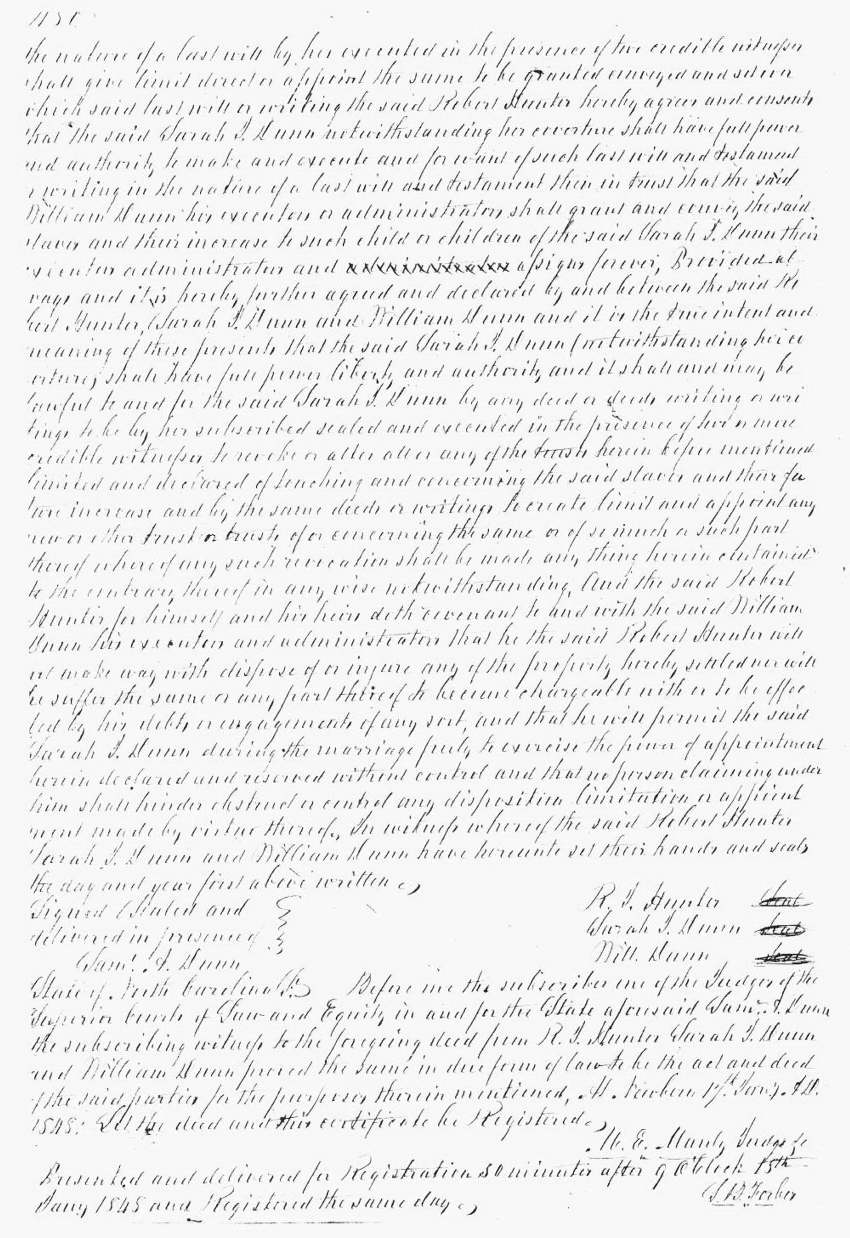 the nature of a last will by her executed in the presence of two credible witnesses
shall give limit direct or appoint the same to be granted conveyed and set over
which said last will or writing the said Robert Hunter hereby agrees and consents
that the said Sarah J. Dunn notwithstanding her coverture shall have full power
and authority to make and execute and for want of such last will and testament
or writing in the nature of a last will and testament then in trust that the said
William Dunn his executors or administrators shall grant and convey the said
slaves and their increase to such child or children of the said Sarah J. Dunn their
executors administrators and assigns forever, Provided al
ways and it is hereby further agreed and declared by and between the said Ro
bert Hunter, Sarah J. Dunn and William Dunn and it is the true intent and
meaning of these presents that the said Sarah J. Dunn (notwithstanding her co
verture) shall have full power liberty and authority and it shall and may be
lawful to and for the said Sarah J. Dunn by any deed or deeds writing or wri
tings to be by her subscribed sealed and executed in the presence of two or more
credible witnesses to revoke or alter all or any of the herein before mentioned
limited and declared of touching and concerning the said slaves and their fu
ture increase and by the same deeds or writings to create limit and appoint any
new or other trust or trusts of or concerning the same or of so much or such part
thereof whereof any such revocation shall be made any thing herein contained
to the contrary thereof in any wise notwithstanding, And the said Robert
Hunter for himself and his heirs doth covenant to and with the said William
Dunn his executors and administrators that he the said Robert Hunter will
not make way with dispose of or injure any of the property hereby settled nor will
he suffer the same or any part thereof to become chargeable with or to be affec
ted by his debts or engagements of any sort, and that he will permit the said
Sarah J. Dunn during the marriage freely to exercise the power of appointment
herein declared and reserved without control and that no person claiming under
him shall hinder obstruct or control any disposition limitation or appoint
ment made by virtue thereof, In witness whereof the said Robert Hunter
Sarah J. Dunn and William Dunn have hereunto set their hands and seals
the day and year first above written,
Signed Sealed and R. J. Hunter Seal
delivered in presence of Sarah J. Dunn Seal
Saml. A. Dunn Will. Dunn Seal
State of North Carolina Before me the subscriber one of the Judges of the
Superior Courts of Law and Equity in and for the State aforesaid Saml. A. Dunn
the subscribing witness to the foregoing deed from R. J. Hunter Sarah J. Dunn
and William Dunn proved the same in due form of law to be the act and deed
of the said parties for the purposes therein mentioned, At Newbern 17th Jany. AD.
1848. Let the deed and this certificate be Registered,
M. E. Manly Judge &c
Presented and delivered for Registration 50 minutes after 9 O'Clock 18th
Jany 1848 and Registered the same day, Forbes